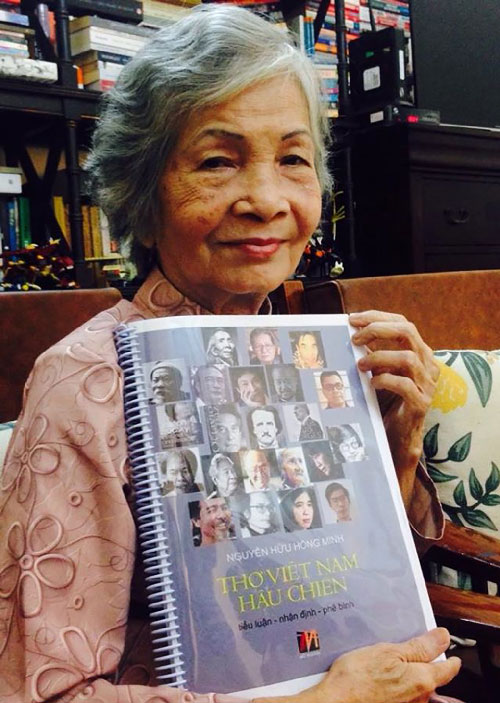 NGUYỄN HỮU HỒNG MINH
THƠ VIỆT NAM
HẬU CHIẾN
tiểu luận - nhận định - phê bình